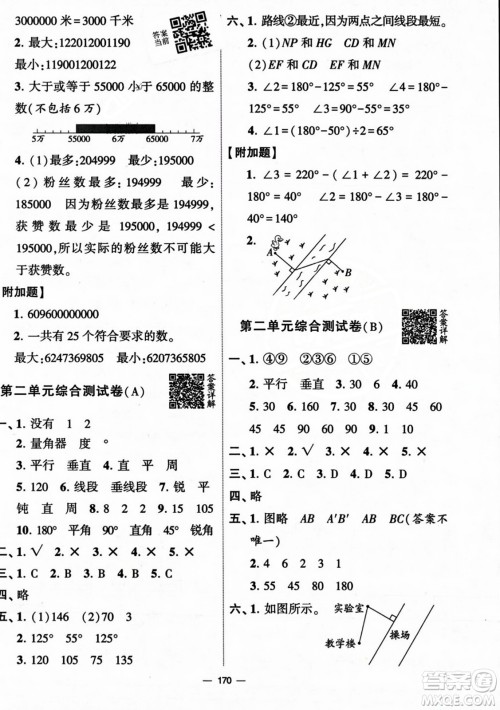 3000000 米=3000 千米
答案当前
2. 最大:122012001190
最小:119001200122
3. 大于或等于 55000 小于 65000 的整
数(不包括 6 万)
5万 55000 65000 7万
4. (1)最多:204999 最少:195000
(2)粉丝数最多:194999 最少:
185000 因为粉丝数最多 194999,
获赞数最少 195000,194999<
195000,所以实际的粉丝数不可能大
于获赞数。
附加题】
1. 609600000000
2. 一共有 25 个符合要求的数。
最大:6247369805 最小:6207369805
第二单元综合测试卷(A)
答案详解
一、1. 没有 1 2
2. 量角器 度 °
3. 平行 垂直 直 平 周
5. 120 6. 线段 线段 7. 锐 平
钝 直 周 8. 45 9. 135
10. 180° 平角 90° 直角 50° 锐角
二、1. √ 2. × 3. × 4. × 5. ×
三、1. C 2. B 3. C 4. B 5. A
四、略
五、1. (1)146 (2)70 3
2. 125° 55° 125°
3. 120 75 60 75 105 135
六、1. 路线②最近,因为两点之间线段最短。
2. (1)NP 和 HG CD 和 MN
(2)EF 和 CD EF 和 MN
3. ∠2=180°-125°=55° ∠4=
180°-55°=125° ∠3=180°-125°=55°
4. ∠1=(180°-50°)÷2=65°
【附加题】
1. ∠3=220°-(∠1+∠2)=220°-
180°=40° ∠1=220°-(∠2+∠3)=
220°-90°=130° ∠2=90°-40°=50°
2.
A
B
第二单元综合测试卷(B)
答案详解
一、1. ④⑨ ②③⑥ ①⑤
2. 平行 垂直 3. 180 4. 8
5. 平 垂直 6. 90 7. 110 35
8. 30 45 30 60 45 90
二、1. × 2. √ 3. × 4. × 5. ×
三、1. C 2. C 3. B 4. D 5. D
四、略
五、1. 图略 AB A'B' AB(答案不
唯一)
2. 1 4 6 8
3. 55 22 45 90 120
六、1. 如图所示。
实验室
教学楼
操场
170